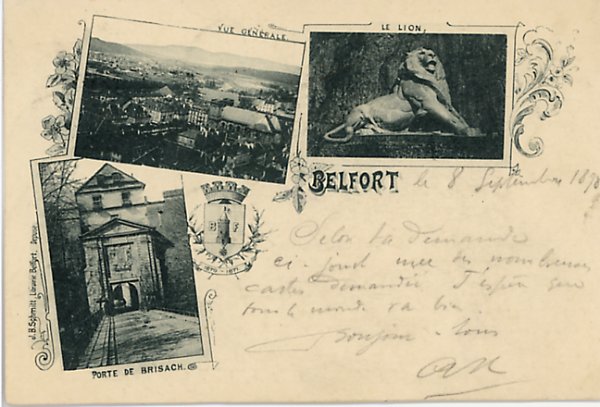 VUE GÉNÉRALE.
LE LION,
BELFORT le 8 Septembre 189
B F
1870 - 1871
Selon ta demande
ci-joint une des nombreuses
cartes demandées J'espère que
tout le monde va bien.
Bonjour à tous
PORTE DE BRISACH.
J. B. Schmitt, Librairie Belfort, Déposé